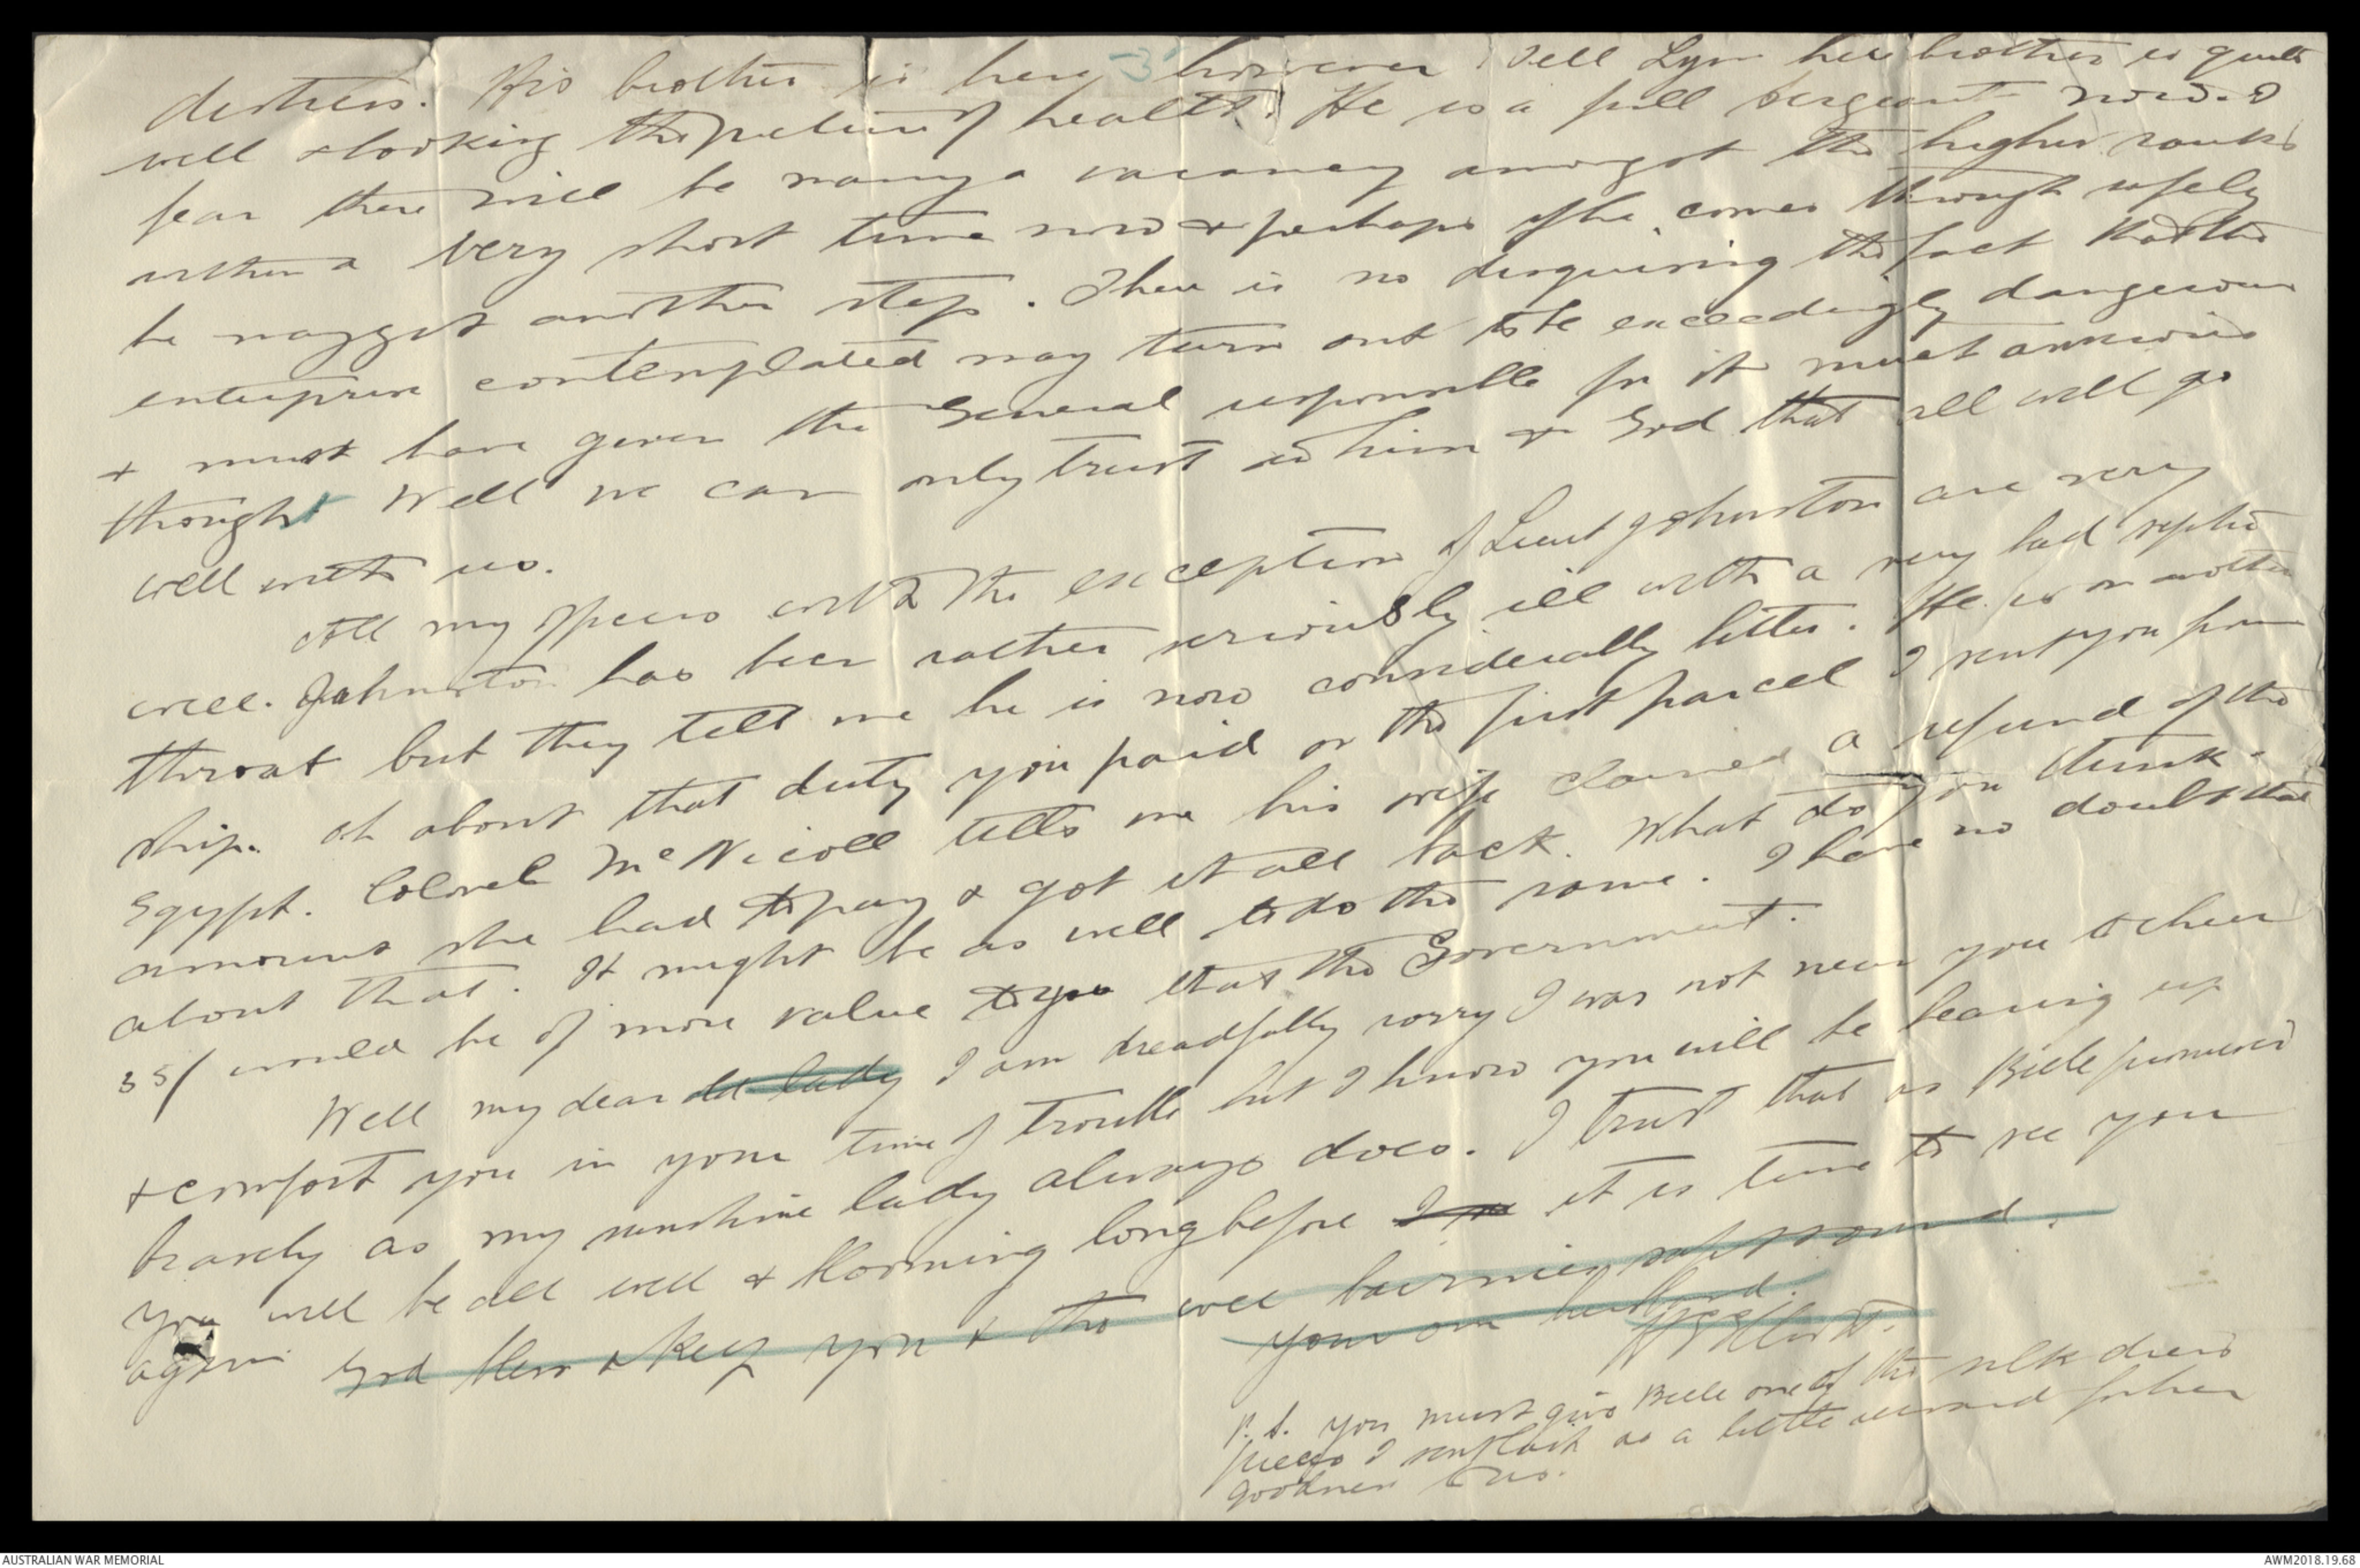 -3-
distress. His brother is here however. Tell Lyn her brother is quite
well & looking the picture of health. He is a full sergeant now. I
fear there will be many a vacancy amongst the higher ranks
within a very short time now & perhaps if he comes through safely
he may get another step. There is no disguising the fact that the
enterprise contemplated may turn out to be exceedingly dangerous
& must have given the General responsible for it must anxious
thought Well we can only trust in him & God that all will go
well with us.
All my officers with the exception of Lieut Johnston are very
well. Johnston has been rather seriously ill with a very bad septic
throat but they tell me he is now considerably better. He is on another
ship. Oh about that duty you paid on the first parcel I sent you from
Egypt. Colonel McNicoll tells me his wife claimed a refund of the
amount she had to pay & got it all back. What do you think
about that. It might be as well to do the same. I have no doubt that
35/ would be of more value to you that the Government.
Well my dear old lady I am dreadfully sorry I was not near you to cheer
& comfort you in your time of trouble but I know you will be bearing up
bravely as my sunshine lady always does. I trust that as Belle promised
you will be all well & blooming long before it is time to see you
again God bless & keep you & the wee bairnies safe & sound.
Your own husband.
P.S. You must give Belle one of the silk dress
pieces I sent back as a little reward for her
goodness to us.
AUSTRALIAN WAR MEMORIAL
AWM2018.19.68